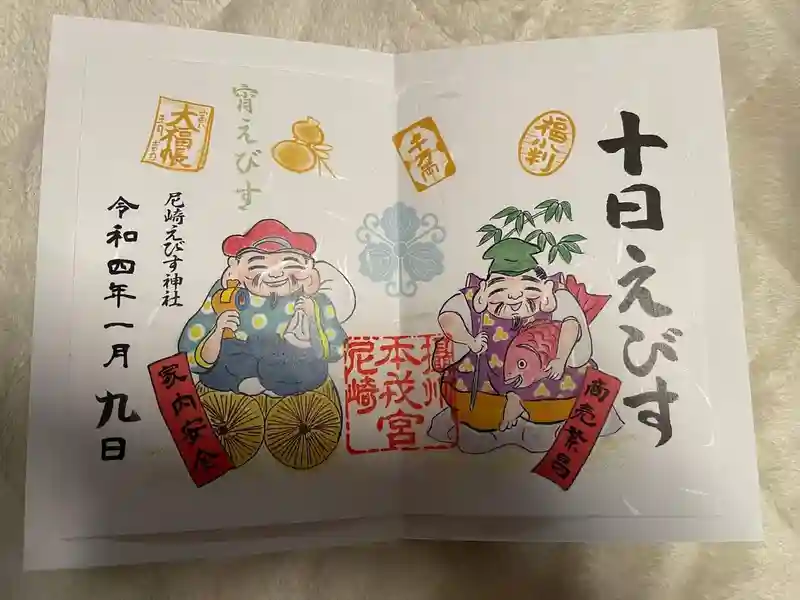 十日えびす
福小判
千両
宵えびす
大福帳
尼崎えびす神社
令和四年一月九日
商売繁昌
家内安全
尼崎